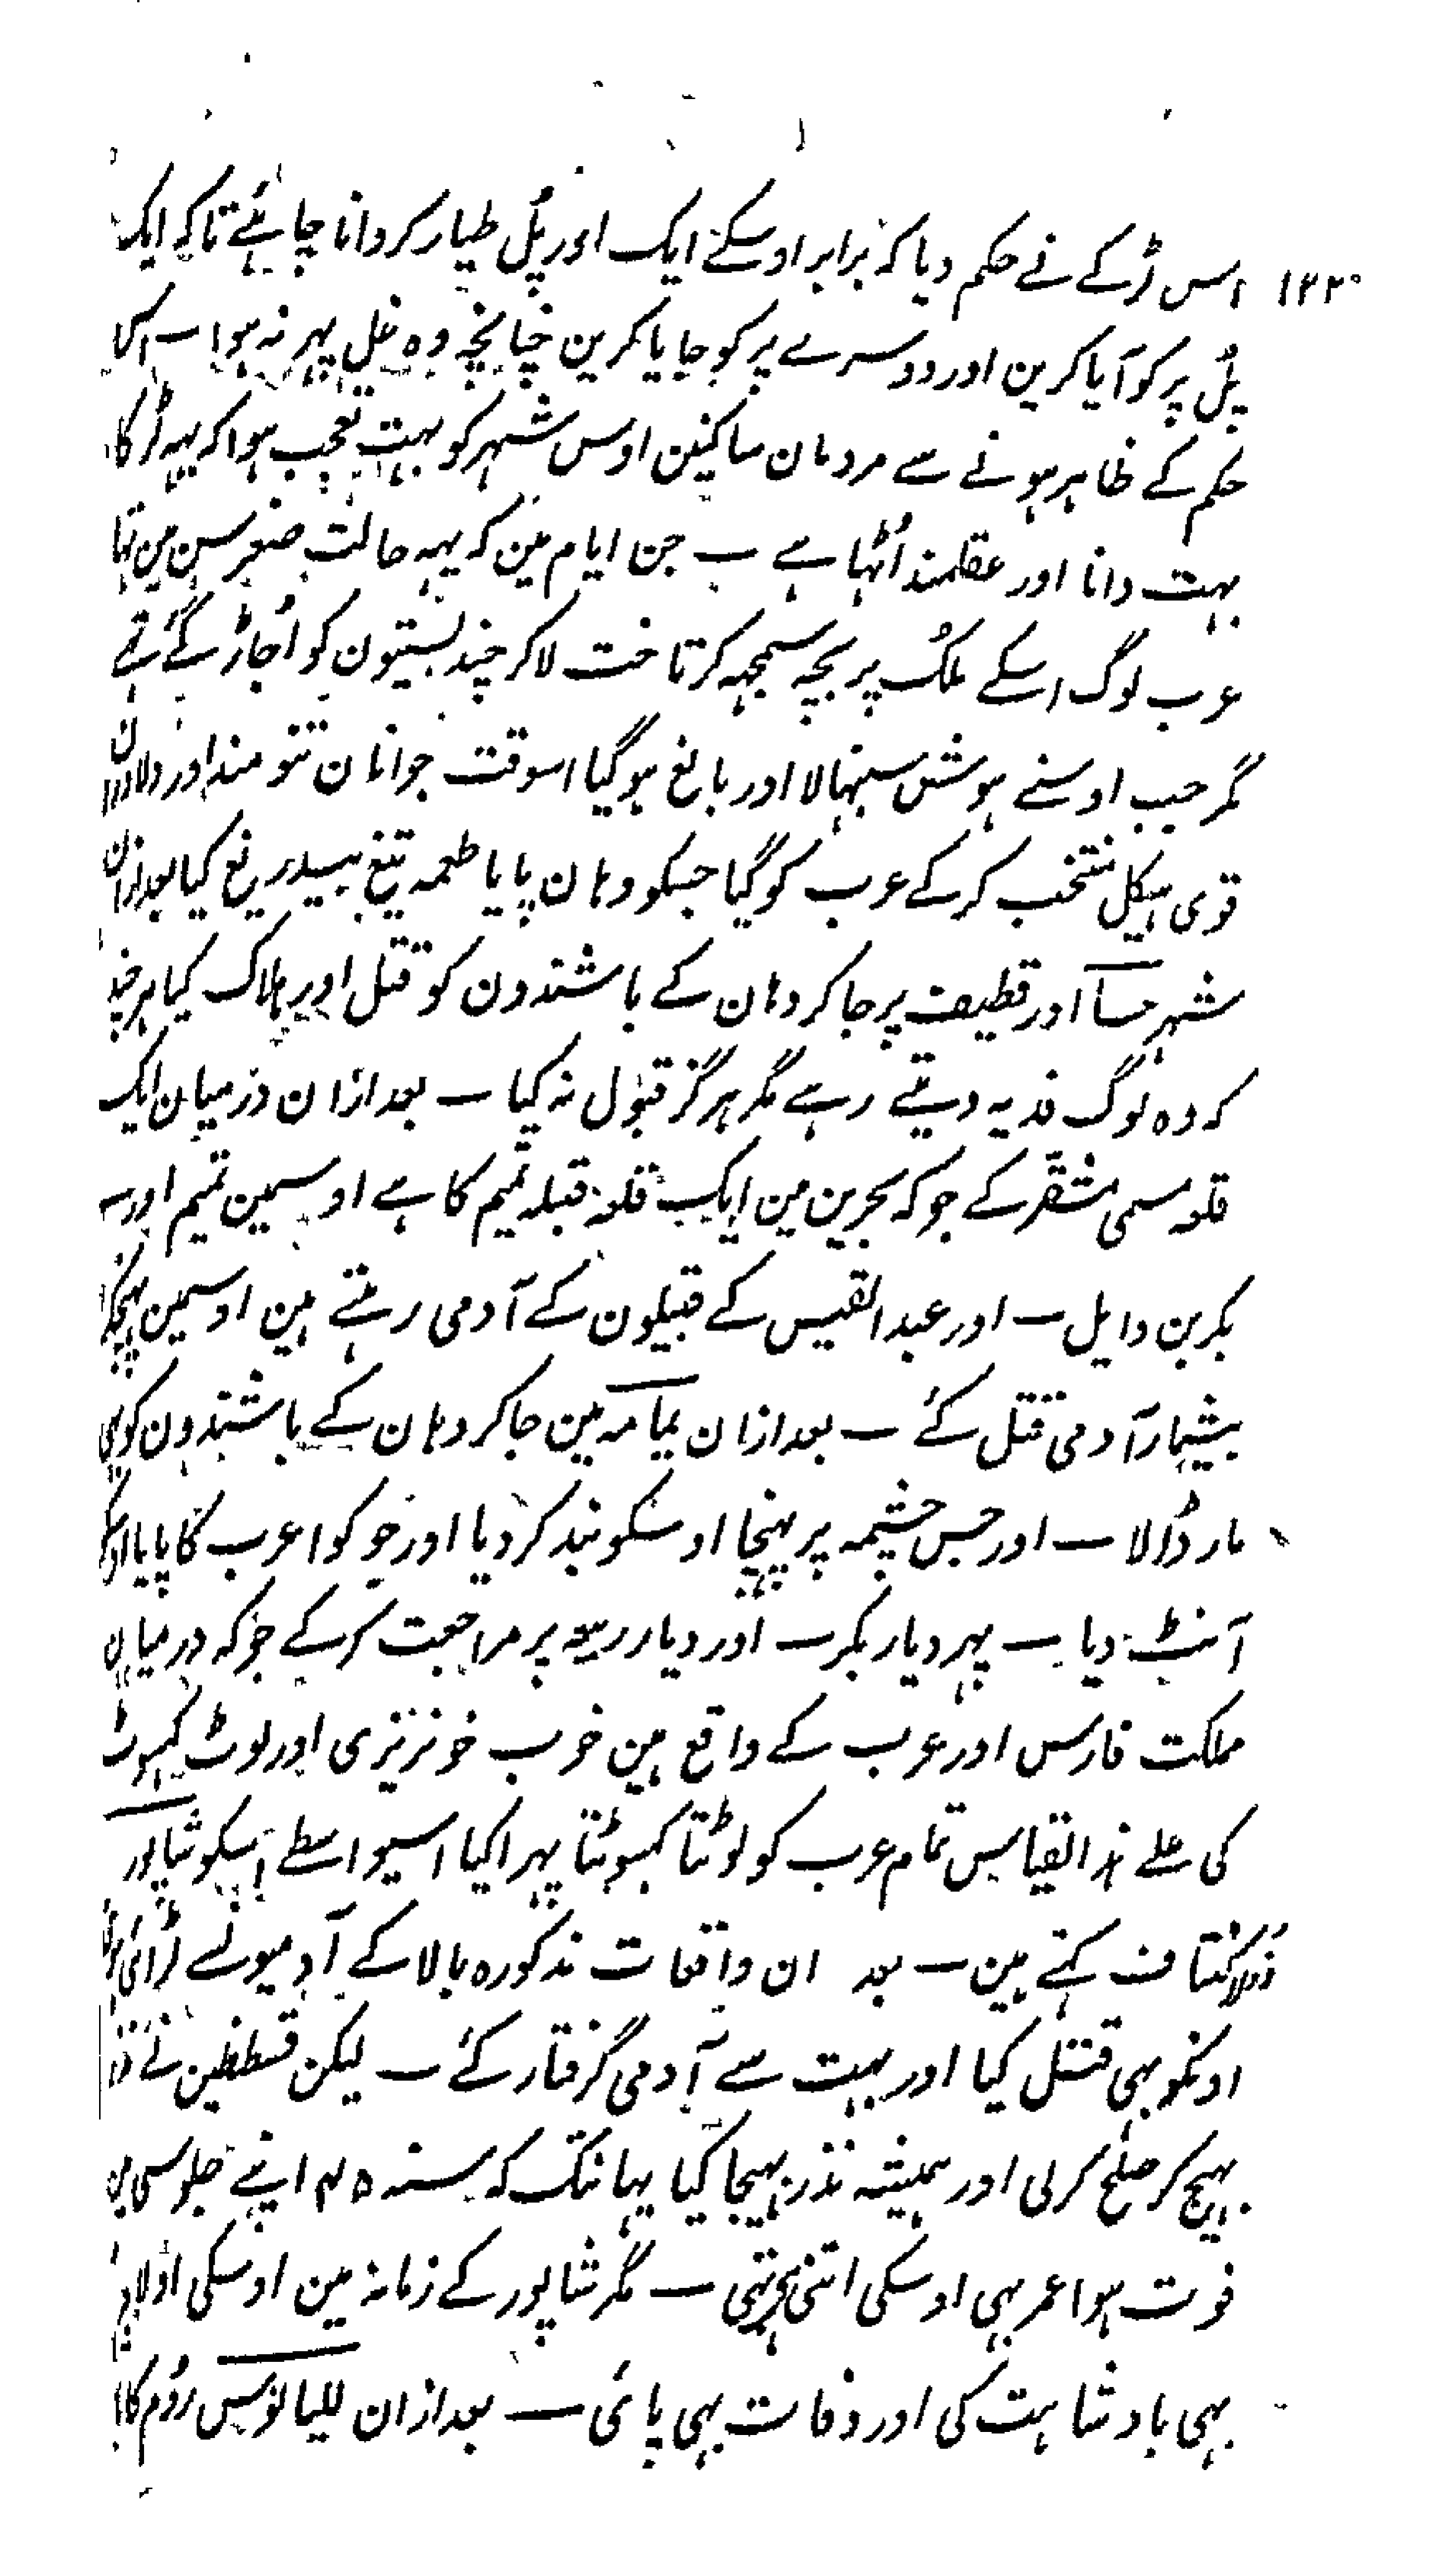 ۱۲۲۰ اس لڑکے نے حکم دیا کہ برابر اوسکے ایک اور پل طیار کروانا چاہئے تاکہ ایک
پل پر کو آیا کرین اور دوسرے پر کو جایا کرین چنانچہ وہ غل پہر نہ ہوا ــ اس
حکم کے ظاہر ہونے سے مردمان ساکنین اوس شہر کو بہت تعجب ہوا کہ یہہ لڑکا
بہت دانا اور عقلمند اُٹہا ہے ــ جن ایام مین کہ یہہ حالت صغر سن مین تہا
عرب لوگ اسکے ملک پر بچہ سمجہہ کر تاخت لا کر چند بستیون کو اُجاڑ گئے تہے
مگر جب اوسنے ہوش سنبہالا اور بالغ ہو گیا اسوقت جوانان تنومند اور دلاوران
قوی ہیکل منتخب کر کے عرب کو گیا جسکو وہان پایا طعمہ تیغ بیدریغ کیا بعد ازان
شہر حسا اور قطیف پر جا کر وہان کے باشندون کو قتل اور ہلاک کیا ہر چند
کہ وہ لوگ فدیہ دیتے رہے مگر ہرگز قبول نہ کیا ــ بعد ازان درمیان ایک
قلعہ مسمی مشقر کے جو کہ بحرین مین ایک قلعہ قبلہ تمیم کا ہے اوسمین تمیم اور
بکر بن وایل ــ اور عبد القیس کے قبیلون کے آدمی رہتے ہین اوسمین پہنچکر
بیشمار آدمی قتل کئے ــ بعد ازان یمامہ مین جا کر وہان کے باشندون کو بہی
مار ڈالا ــ اور جس چشمہ پر پہنچا اوسکو بند کر دیا اور جو کوا عرب کا پایا اوسکو
آنٹ دیا ــ پہر دیار بکر ــ اور دیار ربیعہ پر مراجعت کر کے جو کہ درمیان
مملکت فارس اور عرب کے واقع ہین خوب خونریزی اور لوٹ کہسوٹ
کی علے ہذا القیاس تمام عرب کو لوٹتا کہسوٹتا پہرا کیا اسیواسطے اسکو شاپور
ذوالاکتاف کہتے ہین ــ بعد ان واقعات مذکورہ بالا کے آدمیونسے لڑائی
اونکو بہی قتل کیا اور بہت سے آدمی گرفتار کئے ــ لیکن قسطنطین نے
بہیج کر صلح کر لی اور ہمیشہ نذرین بہیجا کیا یہانتک کہ سنہ ۴۵ اپنے جلوسی مین
فوت ہوا عمر بہی اوسکی اتنی ہی تہی ــ مگر شاپور کے زمانہ مین اوسکی اولاد
بہی بادشاہت کی اور وفات بہی پائی ــ بعد ازان للیالوس روم کا